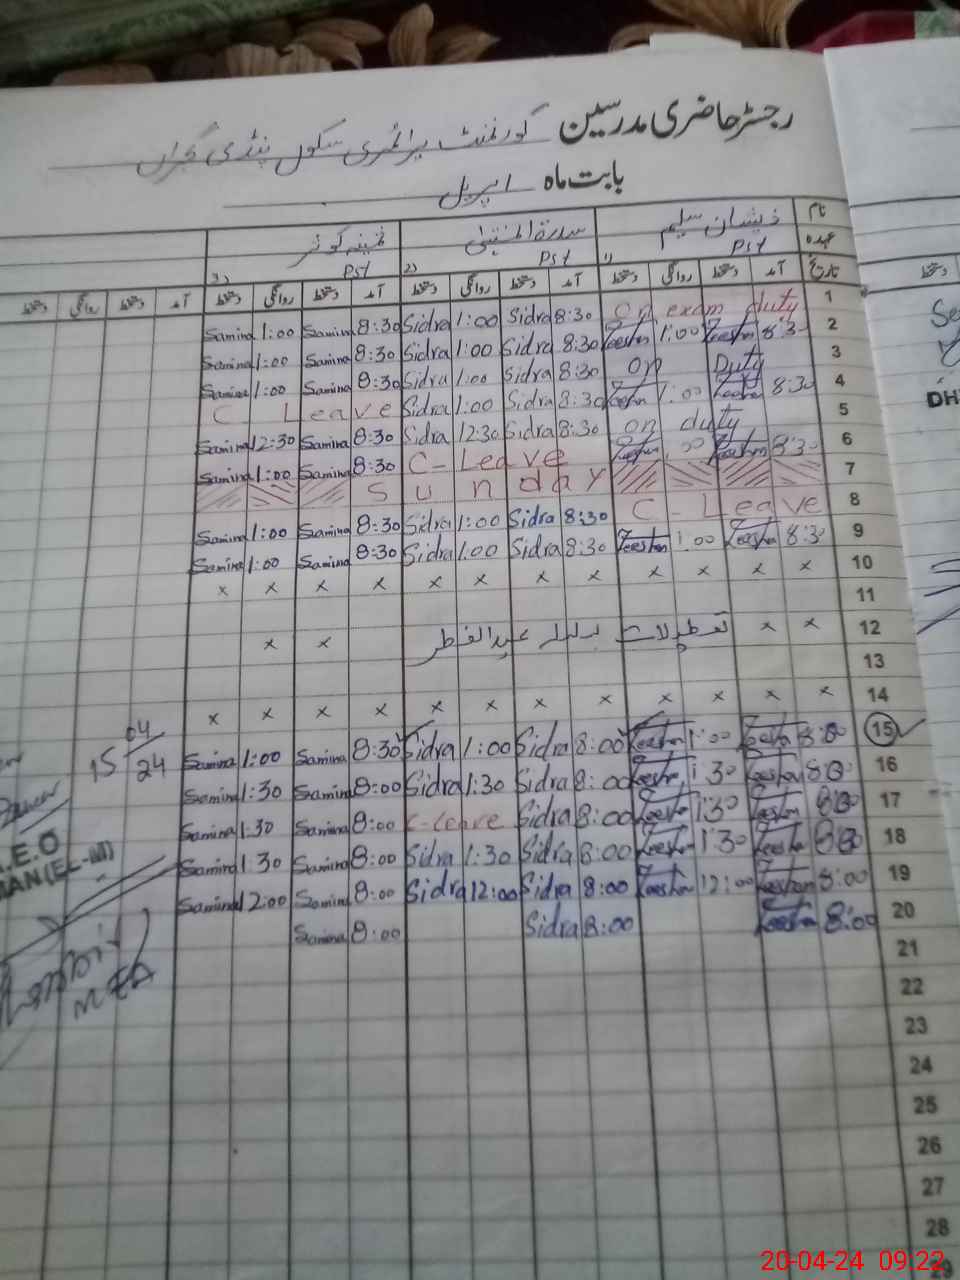 رجسٹر حاضری مدرسین گورنمنٹ پرائمری سکول پنڈی گجراں
بابت ماہ اپریل
نام ذیشان سلیم سدرۃ المنتہیٰ ثمینہ کوثر
عہدہ 1) PST 2) PST 3) PST
تاریخ آمد دستخط روانگی دستخط آمد دستخط روانگی دستخط آمد دستخط روانگی دستخط آمد دستخط روانگی دستخط
Samina 1:00 Samina 8:30 Sidra 1:00 Sidra 8:30 On exam duty 1
Samina 1:00 Samina 8:30 Sidra 1:00 Sidra 8:30 Zeeshan 1:00 Zeeshan 8:30 2
Samina 1:00 Samina 8:30 Sidra 1:00 Sidra 8:30 on Duty 3
C Leave Sidra 1:00 Sidra 8:30 Zeeshan 1:00 Zeeshan 8:30 4
Samina 12:30 Samina 8:30 Sidra 12:30 Sidra 8:30 on duty 5
Samina 1:00 Samina 8:30 C-Leave Zeeshan :00 Zeeshan 8:30 6
Sunday 7
Samina 1:00 Samina 8:30 Sidra 1:00 Sidra 8:30 C-Leave 8
Samina 1:00 Samina 8:30 Sidra 1:00 Sidra 8:30 Zeeshan 1:00 Zeeshan 8:30 9
x x x x x x x x x x x x 10
11
x x تعطیلات بسلسلہ عیدالفطر x x 12
13
x x x x x x x x x x x x 14
15 04/24 Samina 1:00 Samina 8:30 Sidra 1:00 Sidra 8:00 Zeeshan 1:00 Zeeshan 8:00 15
Samina 1:30 Samina 8:00 Sidra 1:30 Sidra 8:00 Zeeshan 1:30 Zeeshan 8:00 16
Samina 1:30 Samina 8:00 C-leave Sidra 8:00 Zeeshan 1:30 Zeeshan 8:00 17
Samina 1:30 Samina 8:00 Sidra 1:30 Sidra 8:00 Zeeshan 1:30 Zeeshan 8:00 18
Samina 12:00 Samina 8:00 Sidra 12:00 Sidra 8:00 Zeeshan 12:00 Zeeshan 8:00 19
Samina 8:00 Sidra 8:00 Zeeshan 8:00 20
21
22
23
24
25
26
27
28
29
.E.O
MAN (EL-M)
MEA
دستخط
DH
20-04-24 09:22